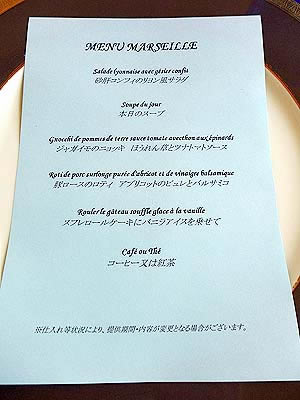 MENU MARSEILLE
Salade lyonnaise avec gésier confit
砂肝コンフィのリヨン風サラダ
Soupe du jour
本日のスープ
Gnocchi de pommes de terre sauce tomate avecthon aux épinards
ジャガイモのニョッキ ほうれん草とツナトマトソース
Roti de porc surlonge purée d'abricot et de vinaigre balsamique
豚ロースのロティ アプリコットのピュレとバルサミコ
Rouler le gâteau souffle glace à la vanille
スフレロールケーキにバニラアイスを乗せて
Café ou Thé
コーヒー又は紅茶
※仕入れ等状況により、提供期間・内容が変更となる場合がございます。